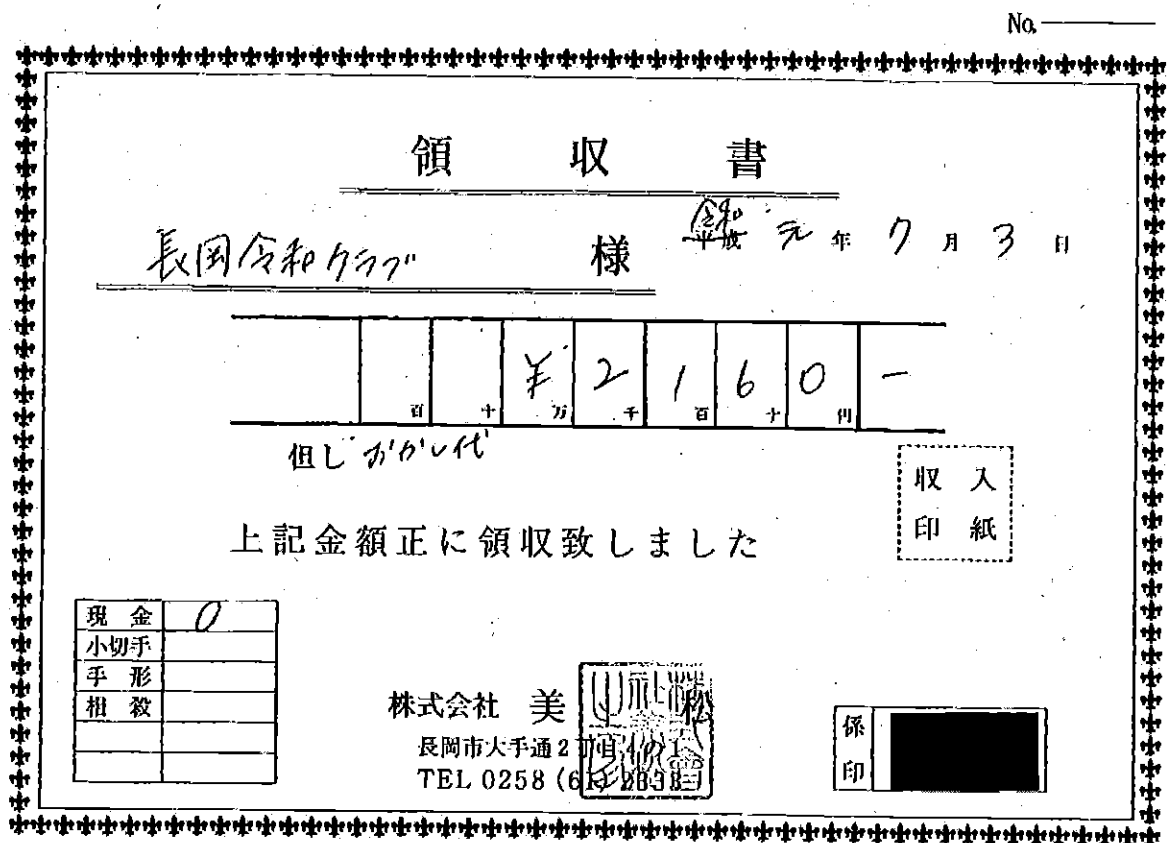 No.
領収書
長岡令和クラブ 様 令和 平成 元年 7月 3日
百 十 ¥万 2千 1百 6十 0円 -
但し おかし代
収入
印紙
上記金額正に領収致しました
現金 0
小切手
手形
相殺
株式会社 美松
長岡市大手通2丁目4の1
TEL 0258 (61)
係
印